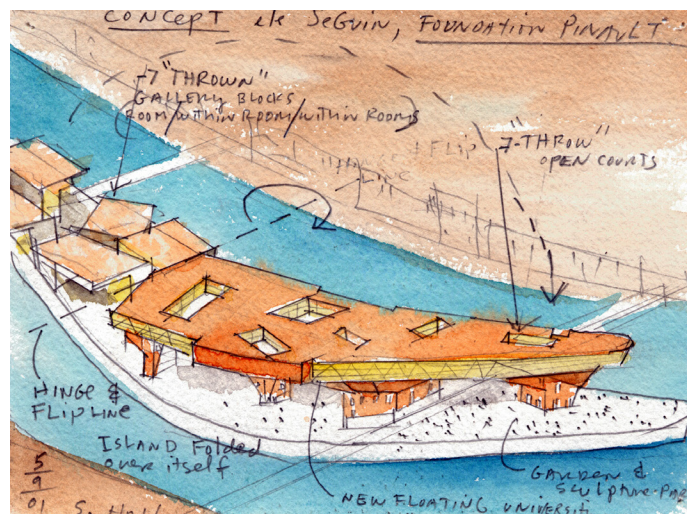 CONCEPT ile SeGUIN, FOUNDATION PINAULT
7 "THROWN"
GALLERY BLOCKS
(ROOM/WITHIN ROOM/WITHIN ROOMS)
FLIP
LINE
7-"THROW"
OPEN COURTS
HINGE &
FLIP LINE
ISLAND Folded
over itself
GARDEN &
Sculpture PAR
NEW FLOATING UNIVERSITY
5
9
01
S. Holl